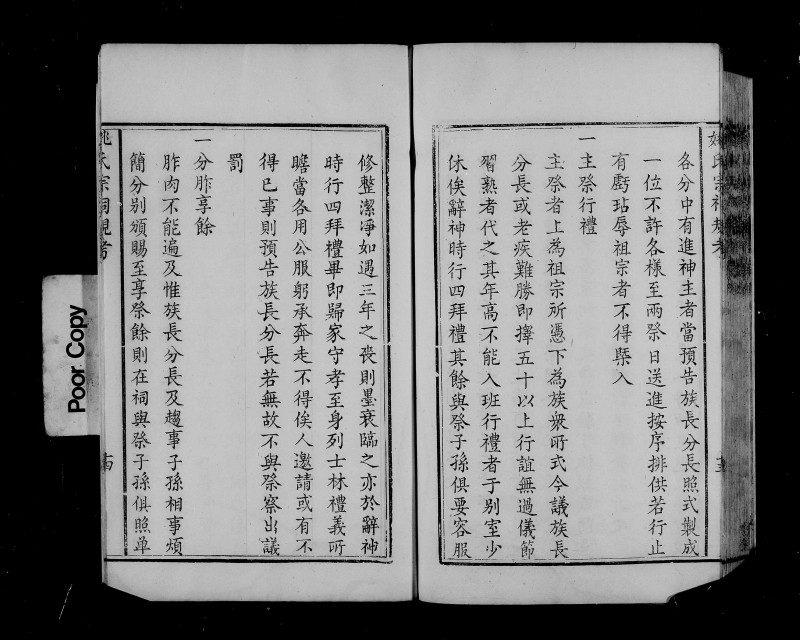 各分中有進神主者當預告族長分長照式製成
一位不許各樣至兩祭日送進按序排供若行止
有虧玷辱祖宗者不得槩入
一主祭行禮
主祭者上為祖宗所憑下為族衆所式今議族長
分長或老疾難勝即擇五十以上行誼無過儀節
習熟者代之其年高不能入班行禮者于别室少
休俟辭神時行四拜禮其餘與祭子孫俱要容服
修整潔淨如遇三年之喪則墨衰臨之亦於辭神
時行四拜禮畢即歸家守孝至身列士林禮義所
瞻當各用公服躬承奔走不得俟人邀請或有不
得已事則預告族長分長若無故不與祭察出議
罰
一分胙享餘
胙肉不能遍及惟族長分長及趨事子孫相事煩
簡分别頒賜至享祭餘則在祠與祭子孫俱照单
姚氏宗祠規考
十四
Poor Copy